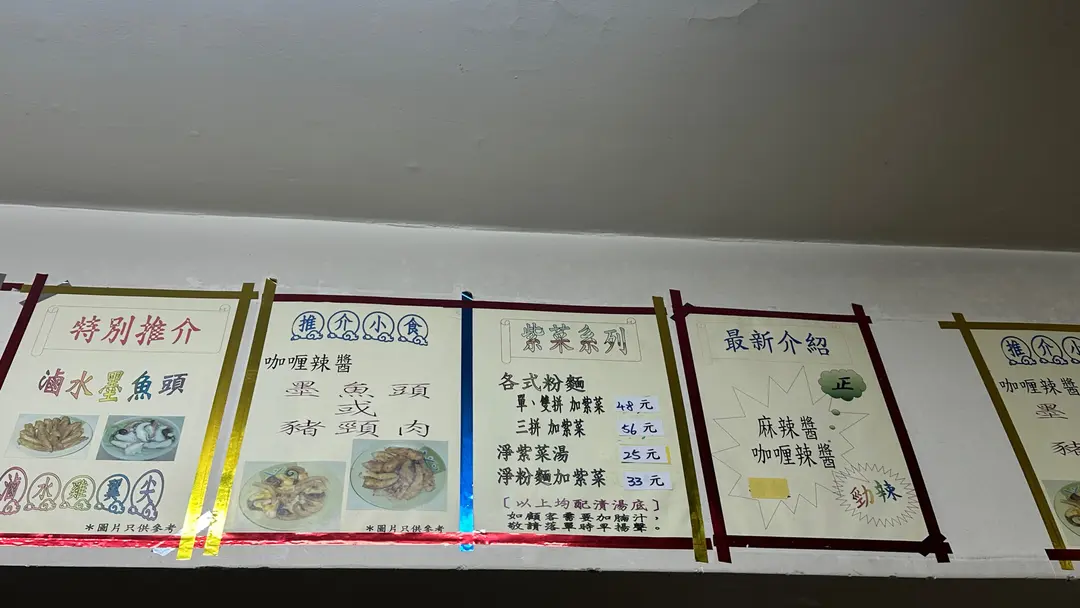 特別推介
滷水墨魚頭
滷水雞翼尖
*圖片只供參考
推介小食
咖喱辣醬
墨魚頭
或
豬頸肉
*圖片只供參考
紫菜系列
各式粉麵
單、雙拼 加紫菜 48元
三拼 加紫菜 56元
淨紫菜湯 25元
淨粉麵加紫菜 33元
[以上均配清湯底]
如顧客需要加腩汁，
敬請落單時早揚聲。
最新介紹
正
麻辣醬
咖喱辣醬
勁辣
推介小
咖喱辣醬
墨
豬